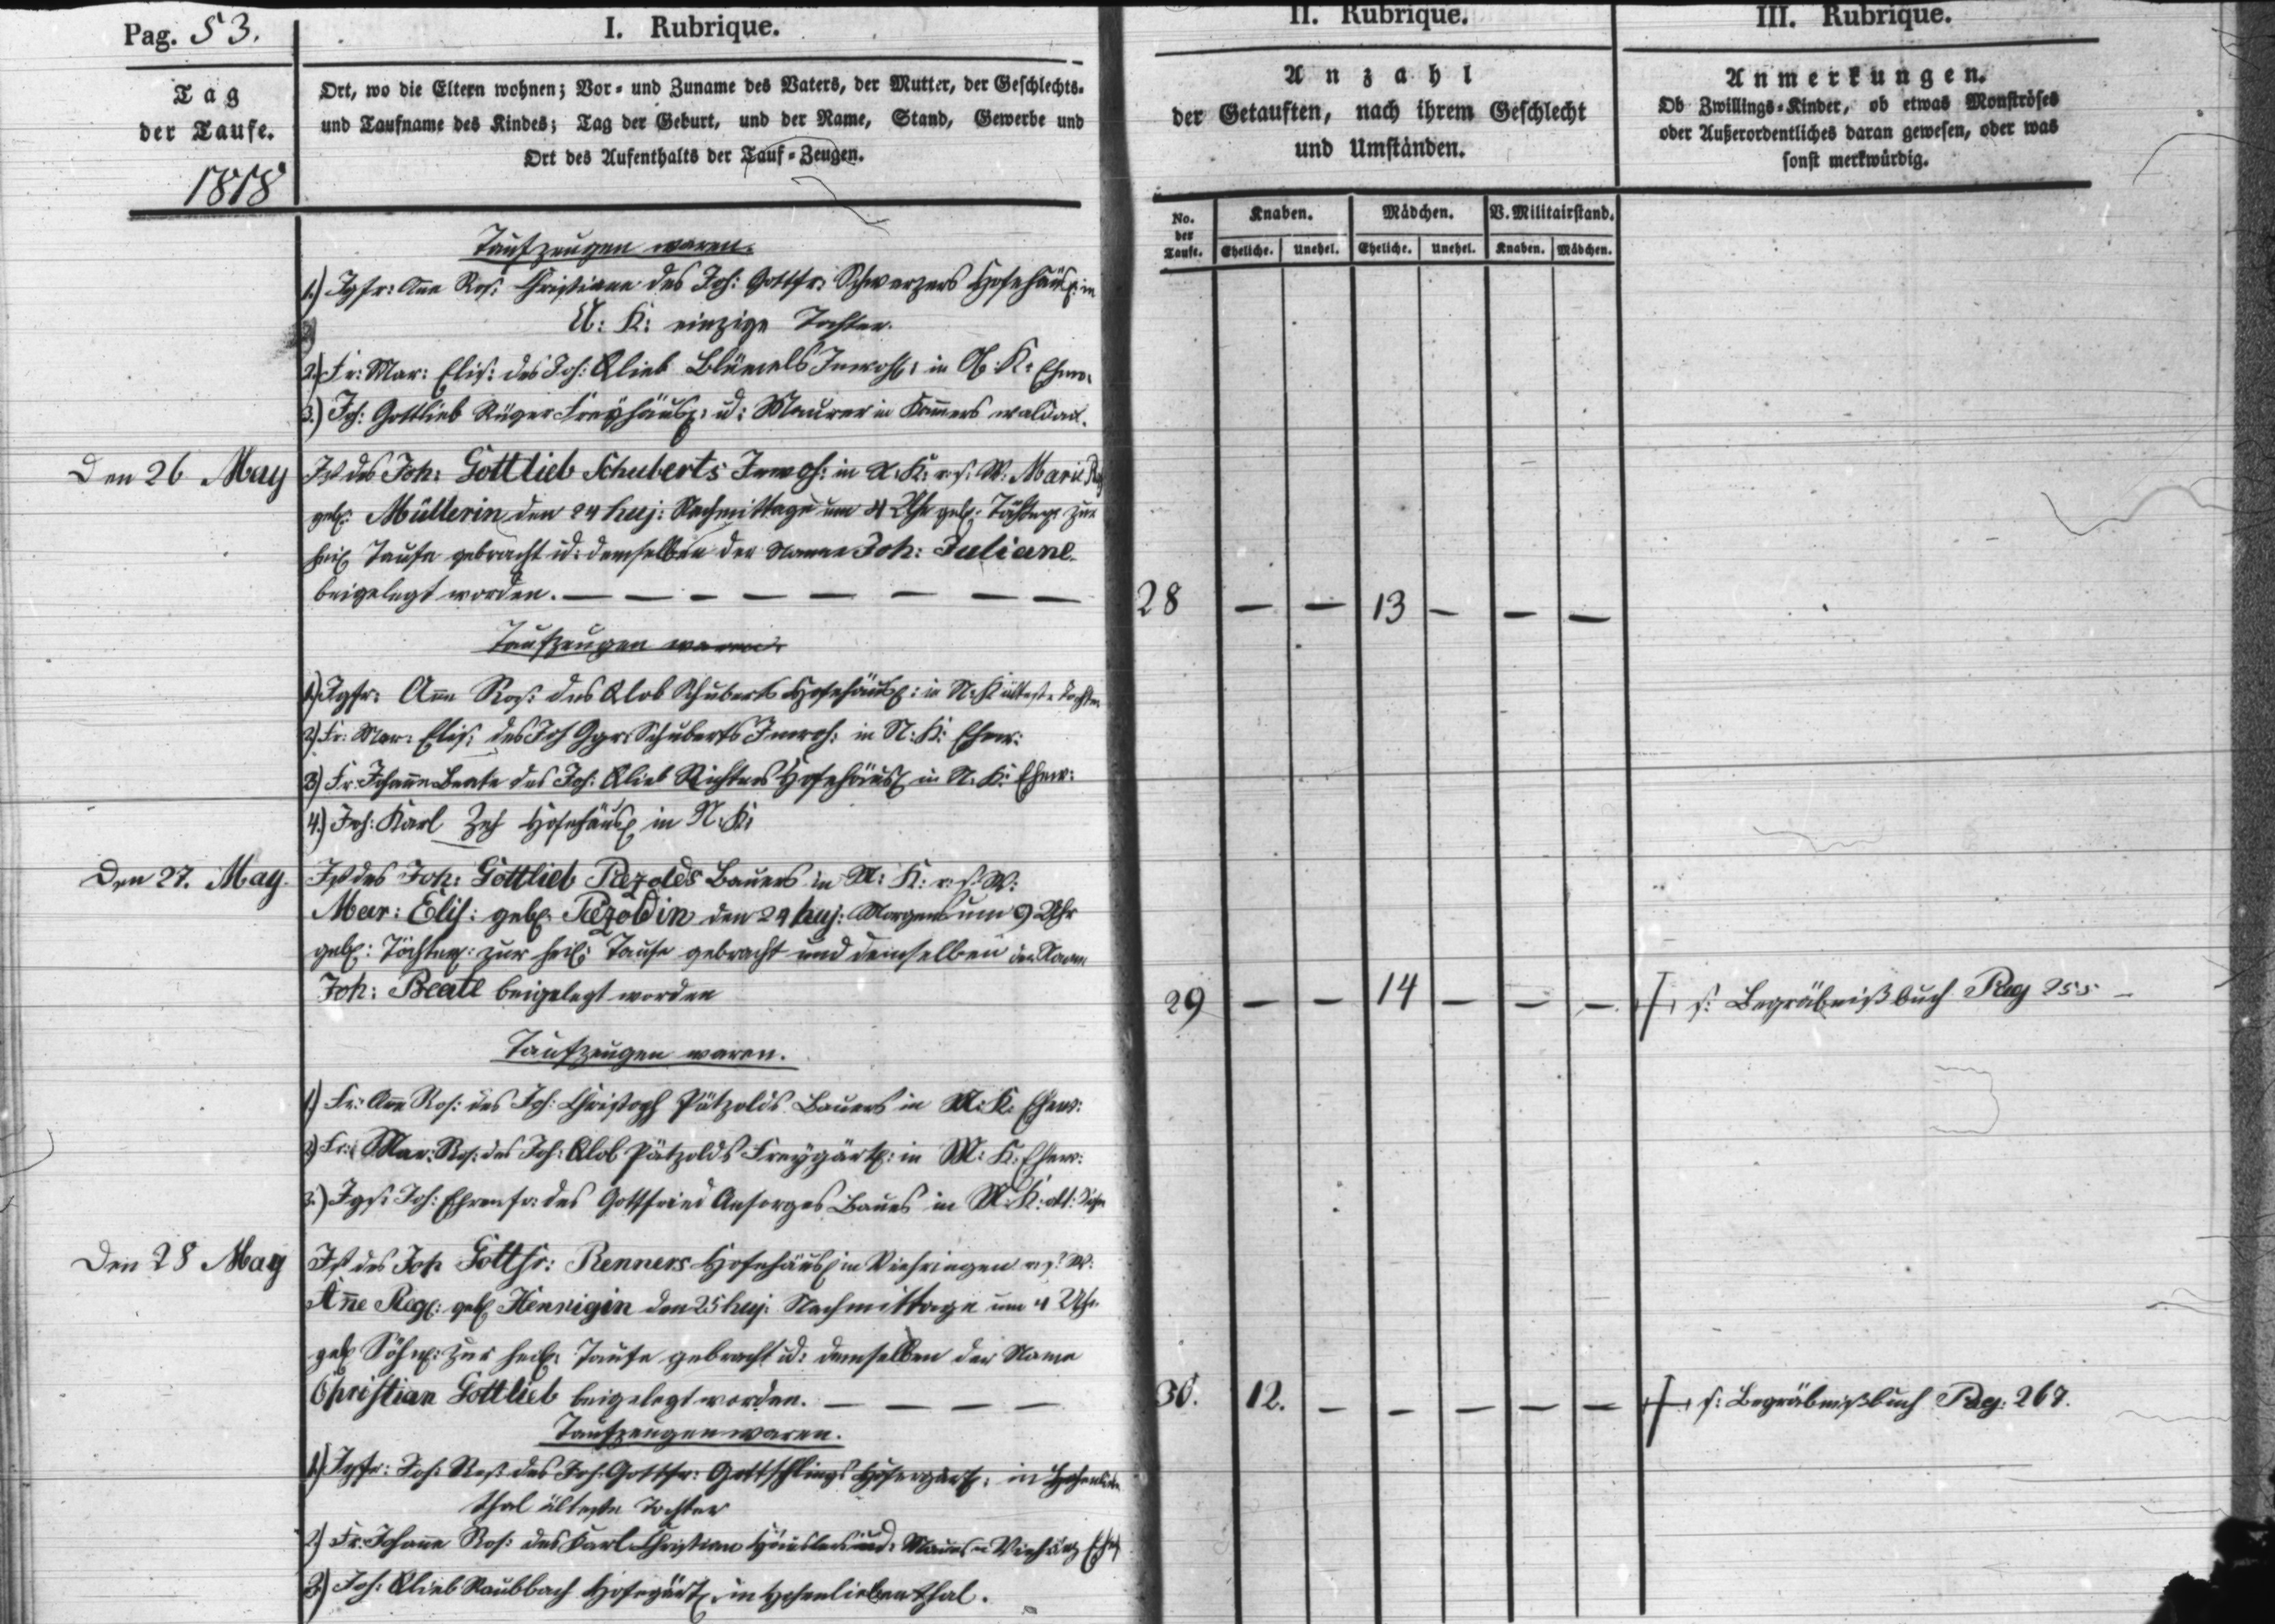 Pag. 53.
I. Rubrique.
II. Rubrique.
III. Rubrique.
Tag
der Taufe.
1818
Ort, wo die Eltern wohnen; Vor- und Zuname des Vaters, der Mutter, der Geschlechts-
und Taufname des Kindes; Tag der Geburt, und der Name, Stand, Gewerbe und
Ort des Aufenthalts der Tauf-Zeugen.
Anzahl
der Getauften, nach ihrem Geschlecht
und Umständen.
Anmerkungen.
Ob Zwillings-Kinder, ob etwas Monströses
oder Außerordentliches daran gewesen, oder was
sonst merkwürdig.
No. der Taufe.
Knaben. Mädchen. V. Militairstand.
Eheliche. Unehel. Eheliche. Unehel. Knaben. Mädchen.
Taufzeugen waren.
1.) Jgfr: Ane Ros: Christiane des Joh: Gottfr: Schwarzers Hofehäusl: in
K: einzige Tochter.
2.) Fr: Mar: Elis: des Joh: Glieb Blümels Inwoh: in K: Ehew:
3.) Joh: Gottlieb Rüger Freyhäusl: u: Maurer in Kamerswaldau.
Den 26 May
Ist des Joh: Gottlieb Schuberts Inwoh: in K: v. s. W. Marie
geb: Müllerin den 24 huj: Nachmittage um 4 Uhr geb: Töchterl: zur
heil Taufe gebracht u: demselben der Name Joh: Juliane
beigelegt worden. — — — — — — — —
28 — — 13 — — —
Taufzeugen waren
1.) Jgfr: Ane Ros: des Glob Schuberts Hofehäusl: in N: K älteste Tochter
2) Fr: Mar: Elis: des Joh Schuberts Inwoh: in N: K: Ehew:
3) Fr: Johanne Beate des Joh: Glieb Richters Hofehäusl in N: K: Ehew:
4.) Joh: Karl Hofehäusl in N: K:
Den 27. May.
Ist des Joh: Gottlieb Pezolds Bauers in K: v. s. W:
Mar: Elis: geb. Pezoldin den 24 huj: Morgens um 9 Uhr
geb: Töchterl: zur heil: Taufe gebracht und demselben der Name
Joh: Beate beigelegt worden
29 — — 14 — — — s: Begräbnißbuch Pag 255 —
Taufzeugen waren.
1) Fr: Ane Ros: des Joh: Christoph Pätzolds Bauers in M: K: Ehew:
2) Fr: Mar: Ros: des Joh: Glob Pätzolds Freygärtl: in M: K: Ehew:
3.) Jgs: Joh: Ehrenfr: des Gottfried Ansorges Bauers in K: Sohn
Den 28 May
Ist des Joh Gottfr: Renners Hofehäusl in v. s. W:
Ane Reg: geb Hennigin den 25 huj: Nachmittage um 4 Uhr
geb Söhnl: zur heil: Taufe gebracht u: demselben der Name
Christian Gottlieb beigelegt worden. — — — —
30. 12. — — — — — s: Begräbnißbuch Pag. 267.
Taufzeugen waren.
1.) Jgfr: Joh: Ros: des Joh: Gottfr: Gottschlings Hofegärtl: in Hohenlieben
thal älteste Tochter
2.) Fr: Johanne Ros: des Karl Christian
3) Joh: Glieb Raubbach Hofegärtl: in Hohenliebenthal.